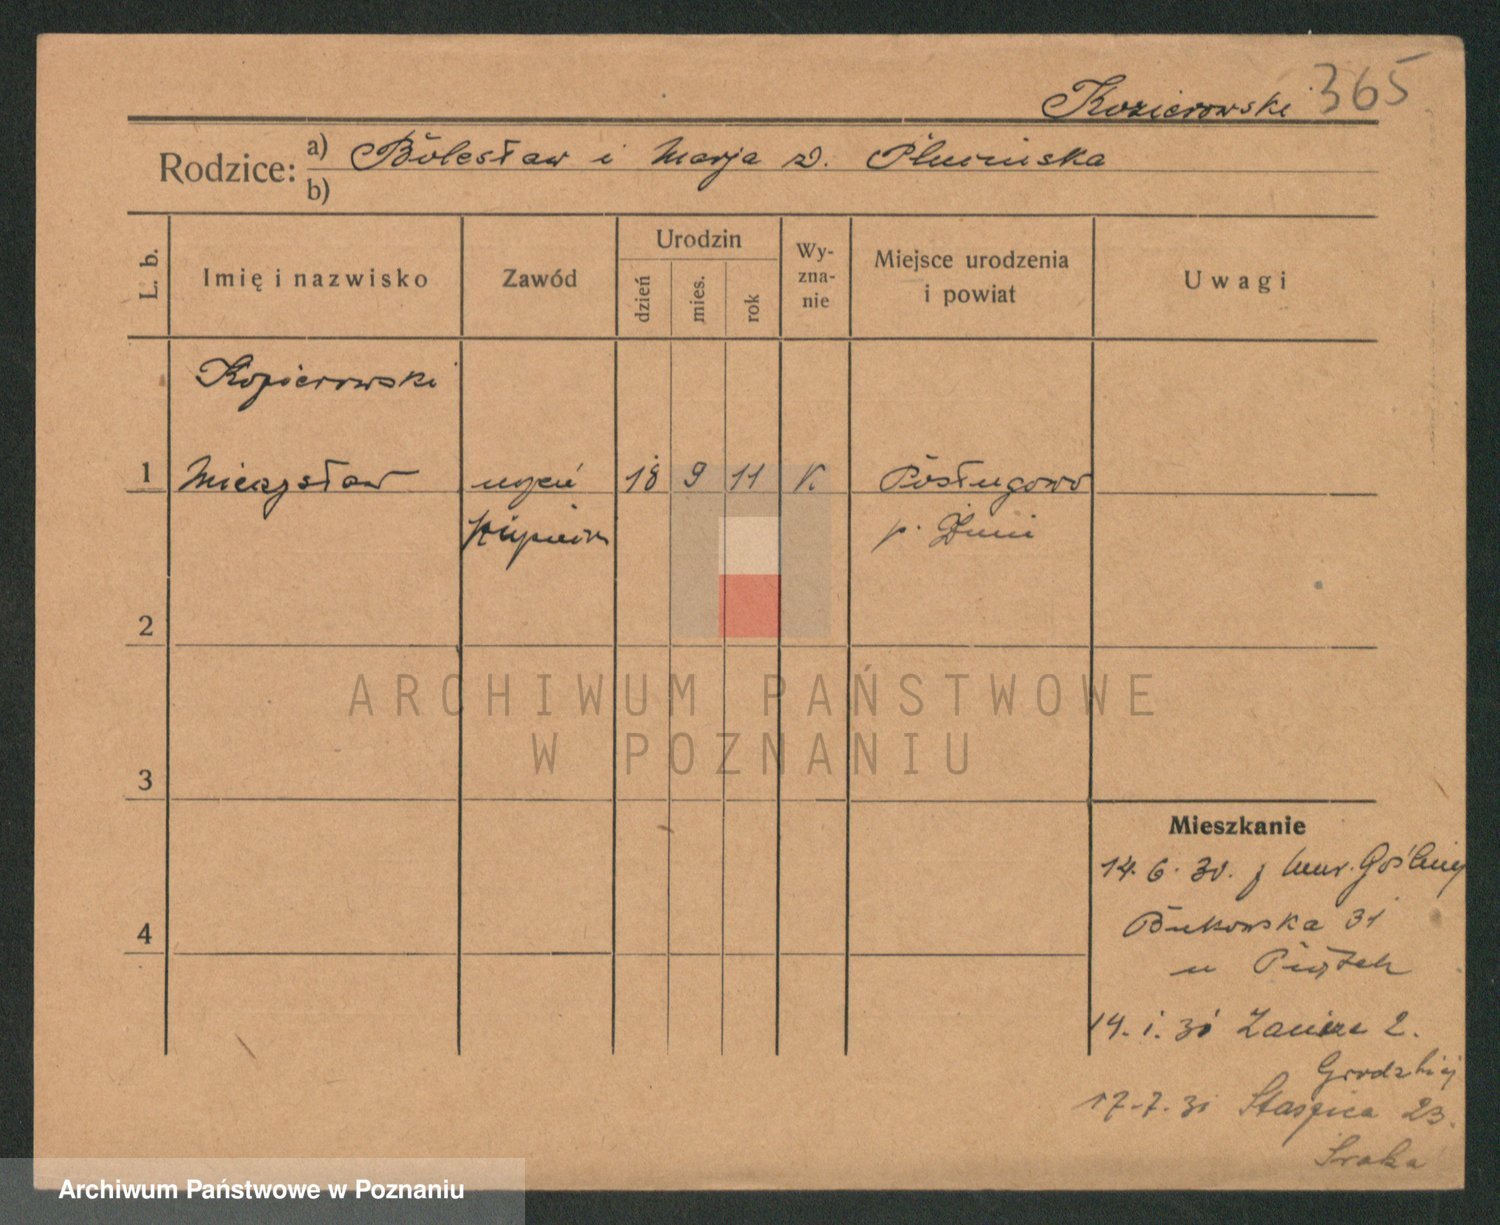 Kozierowski 365
Rodzice: a) Bolesław i Marja d. Plucińska
b)
L. b. Imię i nazwisko Zawód Urodzin dzień mies. rok Wy-zna-nie Miejsce urodzenia i powiat Uwagi
Kozierowski
1 Mieczysław uczeń 18 9 11 k. Posługowo
p. Żnin
2
3
4
ARCHIWUM PAŃSTWOWE
W POZNANIU
Mieszkanie
14. 6. 30. z Mur. Gośliny
Bukowska 31
u Piątek
14. 1. 31 2.
17. 7. 31 Staszica 23.
Sroka
Archiwum Państwowe w Poznaniu